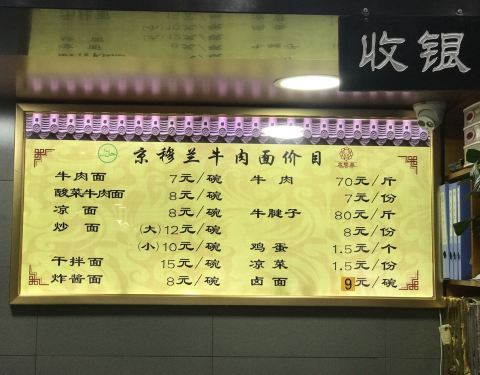 收银
京穆兰牛肉面价目
牛肉面 7元/碗
酸菜牛肉面 8元/碗
凉面 8元/碗
炒面 (大)12元/碗
(小)10元/碗
干拌面 15元/碗
炸酱面 8元/碗
牛肉 70元/斤
7元/份
牛腱子 80元/斤
8元/份
鸡蛋 1.5元/个
凉菜 1.5元/份
卤面 9元/碗